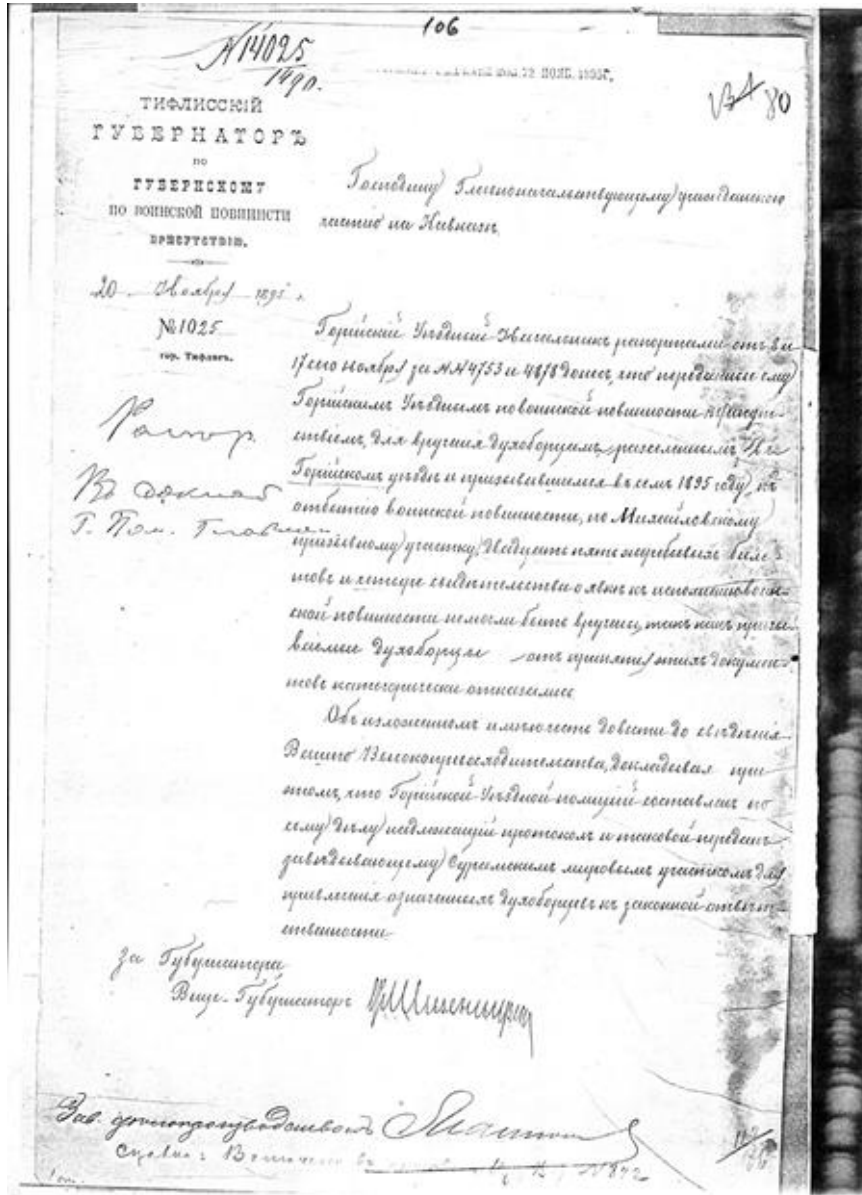 106
N 14025
1490.
22 НОЯБ. 1895Г.
80
ТИФЛИССКІЙ
ГУБЕРНАТОРЪ
ПО
ГУБЕРНСКОМУ
ПО ВОИНСКОЙ ПОВИННОСТИ
ПРИСУТСТВІЮ.
20 Ноября 1895 г.
№ 1025
гор. Тифлисъ.
Господину Главноначальствующему гражданскою
частію на Кавказѣ
Горійскій Уѣздный Начальникъ рапортами отъ 2 и
17 сего ноября за NN 4753 и 4878 донесъ, что переданные ему
Горійскимъ Уѣзднымъ по воинской повинности присут-
ствіемъ, для врученія духоборцамъ, разселеннымъ въ
Горійскомъ уѣздѣ и призывавшимся въ семъ 1895 году къ
отбытію воинской повинности, по Михайловскому
призывному участку, двадцать пять жеребьевыхъ биле-
товъ и четыре свидѣтельства о явкѣ къ исполненію воин-
ской повинности не могли быть вручены, такъ какъ призы-
ваемые духоборцы отъ принятія этихъ докумен-
товъ категорически отказались
Объ изложенномъ имѣю честь довести до свѣдѣнія
Вашего Высокопревосходительства, докладывая при
томъ, что Горійской Уѣздной полиціей составленъ по
сему дѣлу надлежащій протоколъ и таковой переданъ
завѣдывающему Сурамскимъ мировымъ участкомъ для
привлеченія означенныхъ духоборцевъ къ законной отвѣт-
ственности.
Въ докладъ
Г. Пом. Главнон
За Губернатора
Вице-Губернаторъ
Зав. дѣлопроизводствомъ
N 842